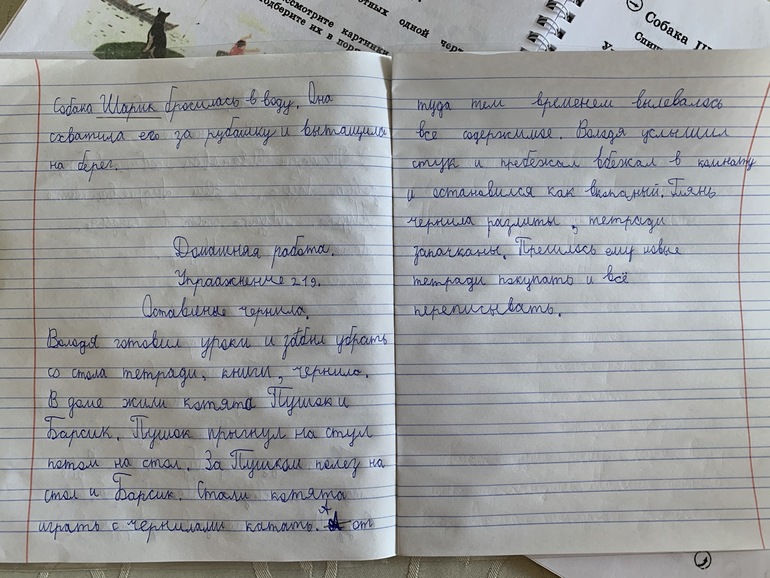 ссмотрите картинки
отных одной черт
одберите их в пор
Собака Ш
Спиш
Собака Шарик бросилась в воду. Она
схватила его за рубашку и вытащила
на берег.
Домашняя работа.
Упражнение 219.
Оставленые чернила.
Володя готовил уроки и забыл убрать
со стола тетради, книги, чернила.
В доме жили котята Пушок и
Барсик. Пушок прыгнул на стул
потом на стол. За Пушком полез на
стол и Барсик. Стали котята
играть с чернилами катать. А от
туда тем временем вылевалось
всё содержимое. Володя услышил
стук и пребежал вбежал в комнату
и остановился как вкопаный. Глянь
чернила разлиты, тетради
запачканы. Пречлось ему новые
тетради покупать и всё
переписывать.